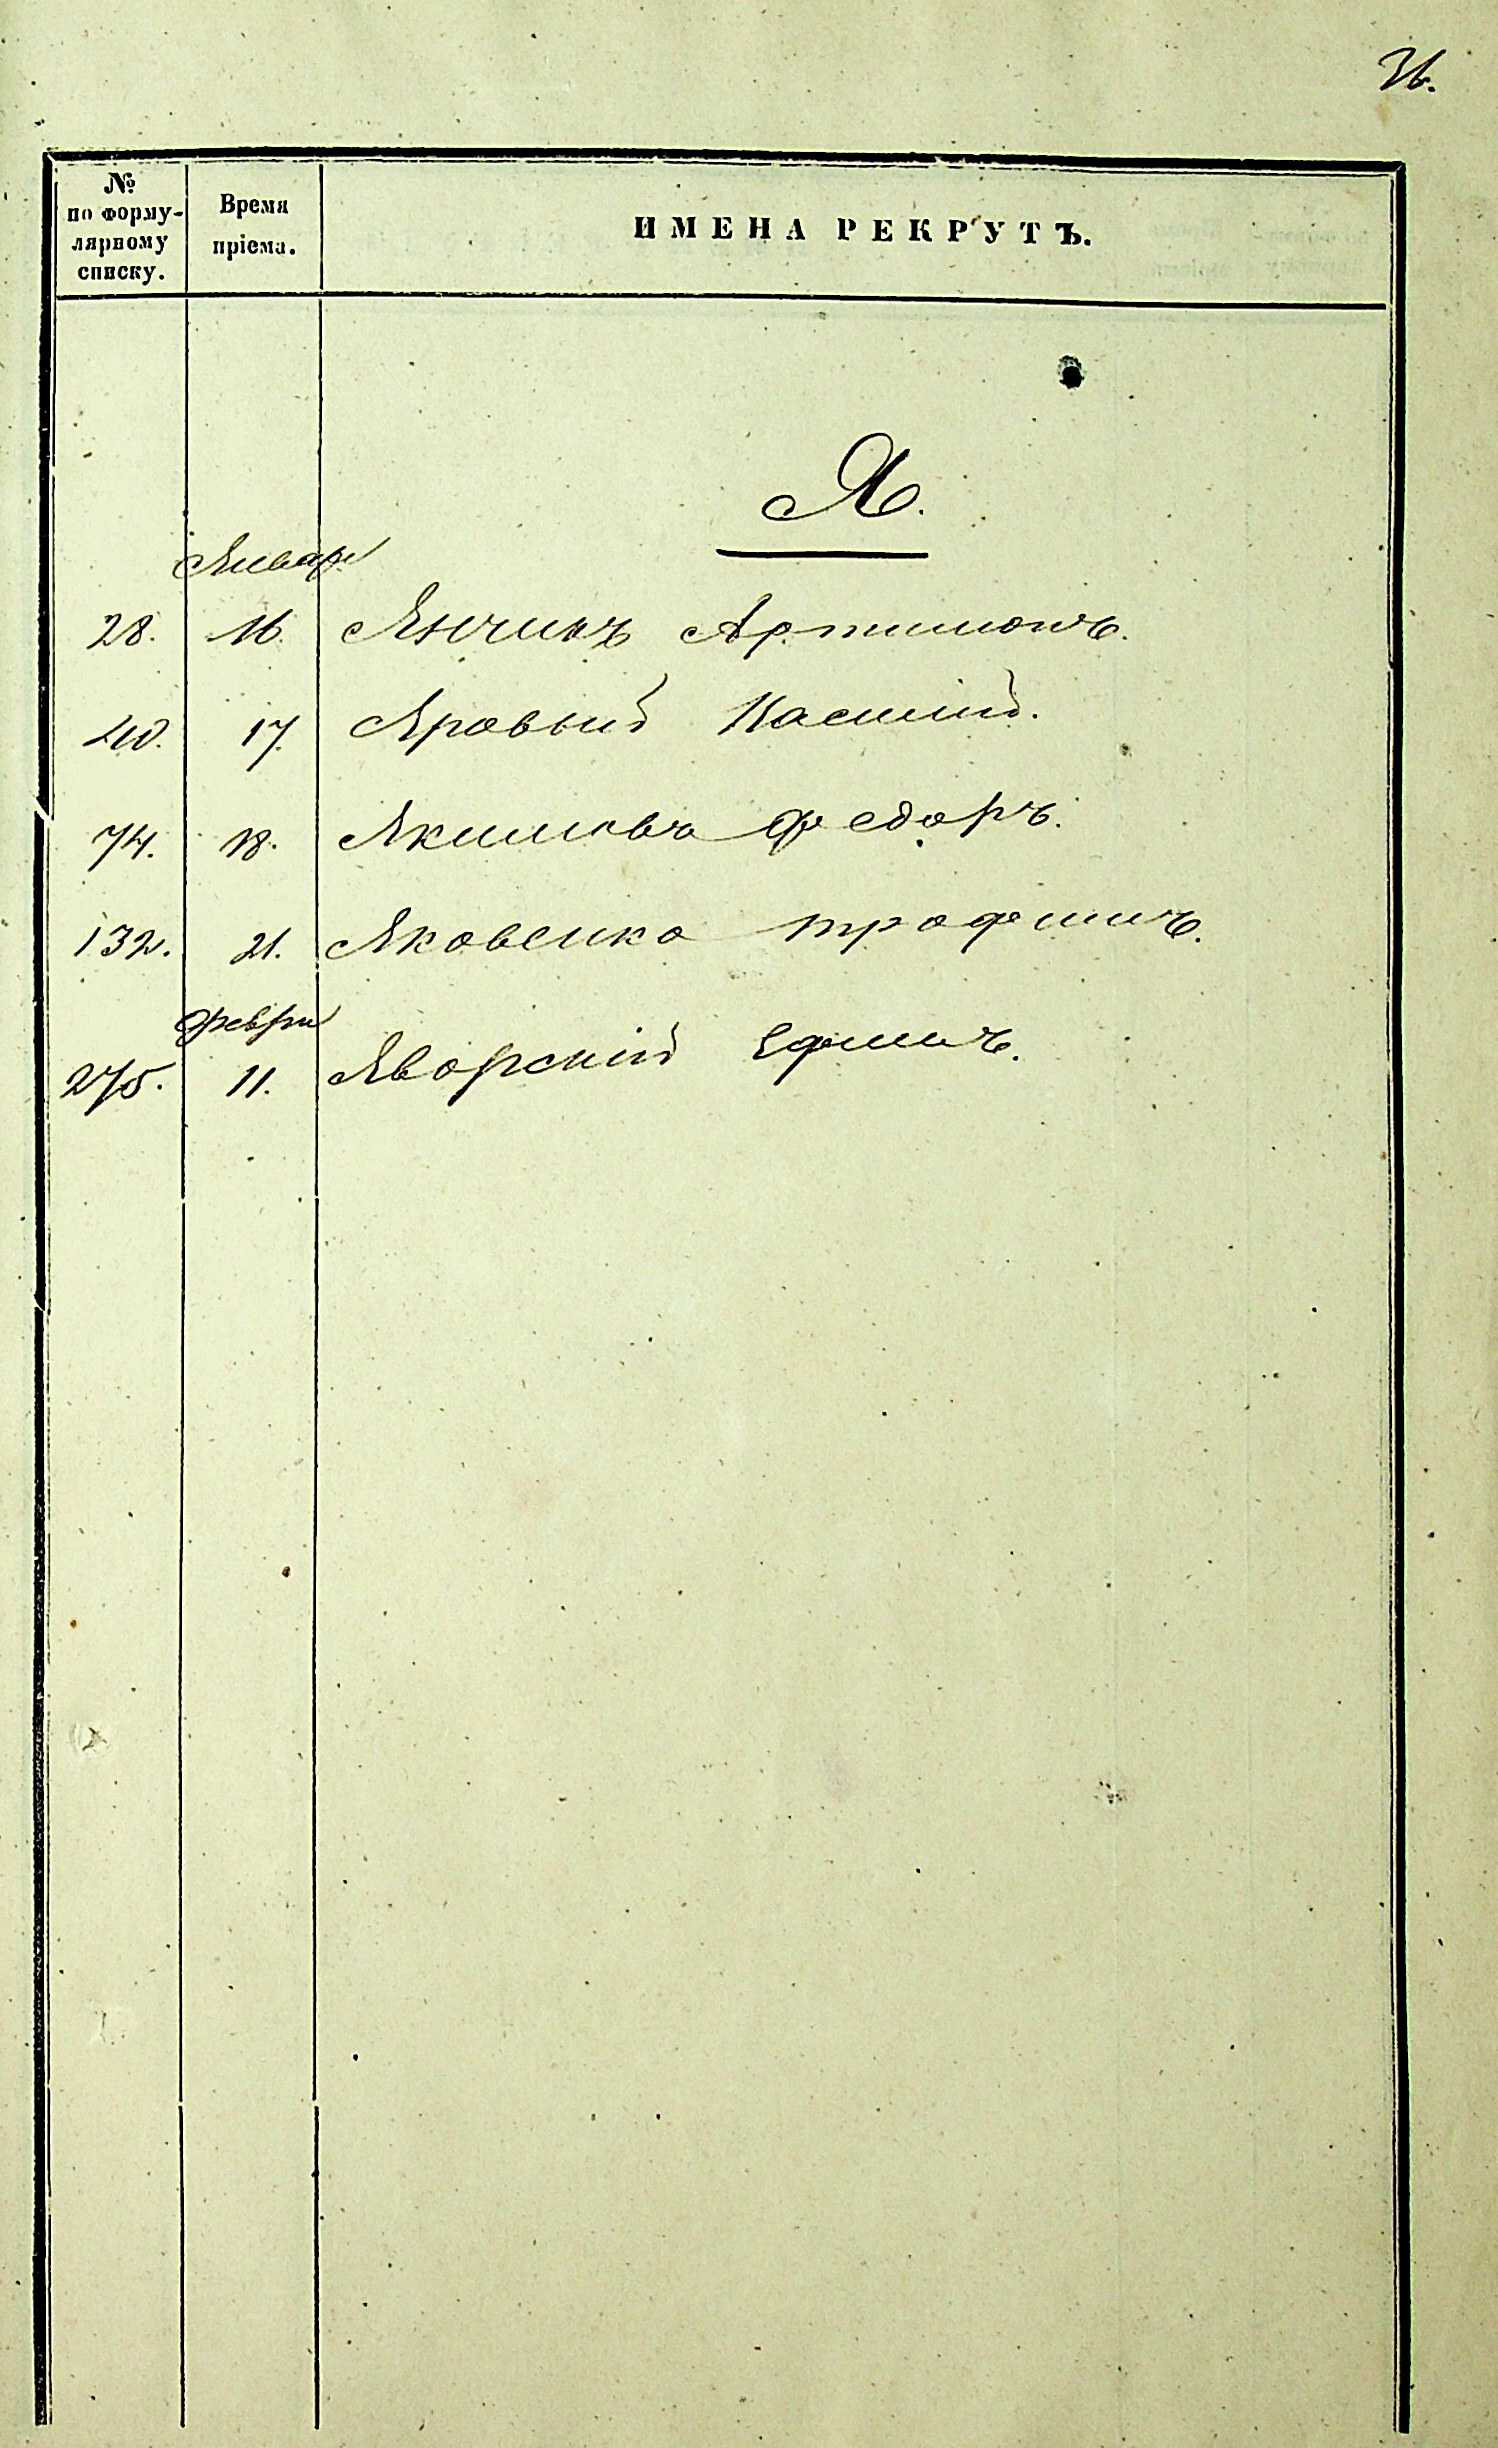 36.
№ по форму-лярному списку. Время пріема. ИМЕНА РЕКРУТЪ.
Я.
Январ
28. 16. Янчикъ Артимонъ.
40. 17. Яровый Касіянъ.
74. 18. Якимовъ Федоръ.
132. 21. Яковенко Трофимъ.
Феврл
275. 11. Яворскій Ефимъ.